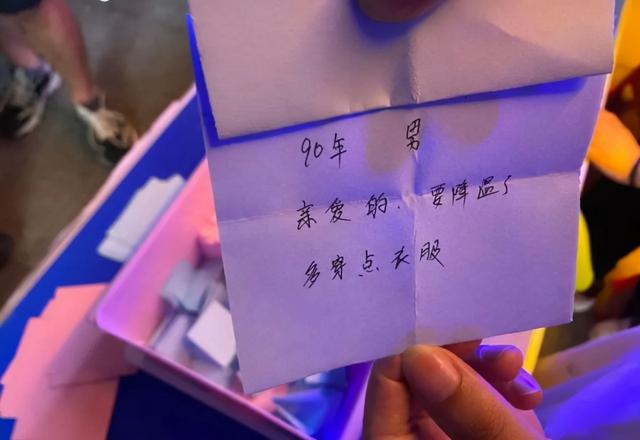 90年 男
亲爱的、要降温了
多穿点衣服